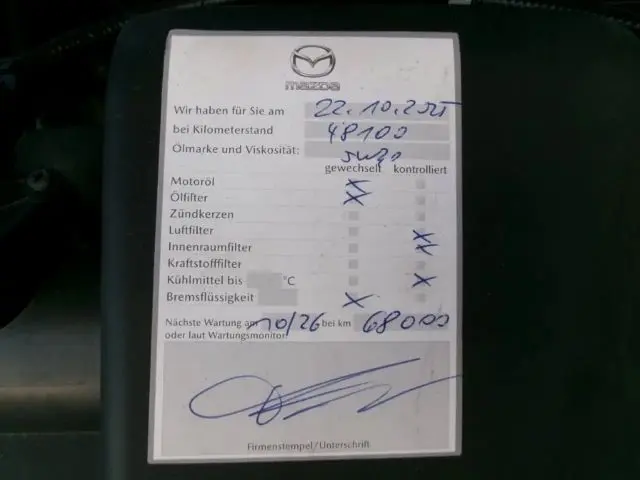 mazda
Wir haben für Sie am 22.10.2025
bei Kilometerstand 48100
Ölmarke und Viskosität: 5W30
gewechselt kontrolliert
Motoröl X
Ölfilter X
Zündkerzen
Luftfilter X
Innenraumfilter X
Kraftstofffilter
Kühlmittel bis °C X
Bremsflüssigkeit X
Nächste Wartung am 10/26 bei km 68000
oder laut Wartungsmonitor
Firmenstempel/Unterschrift